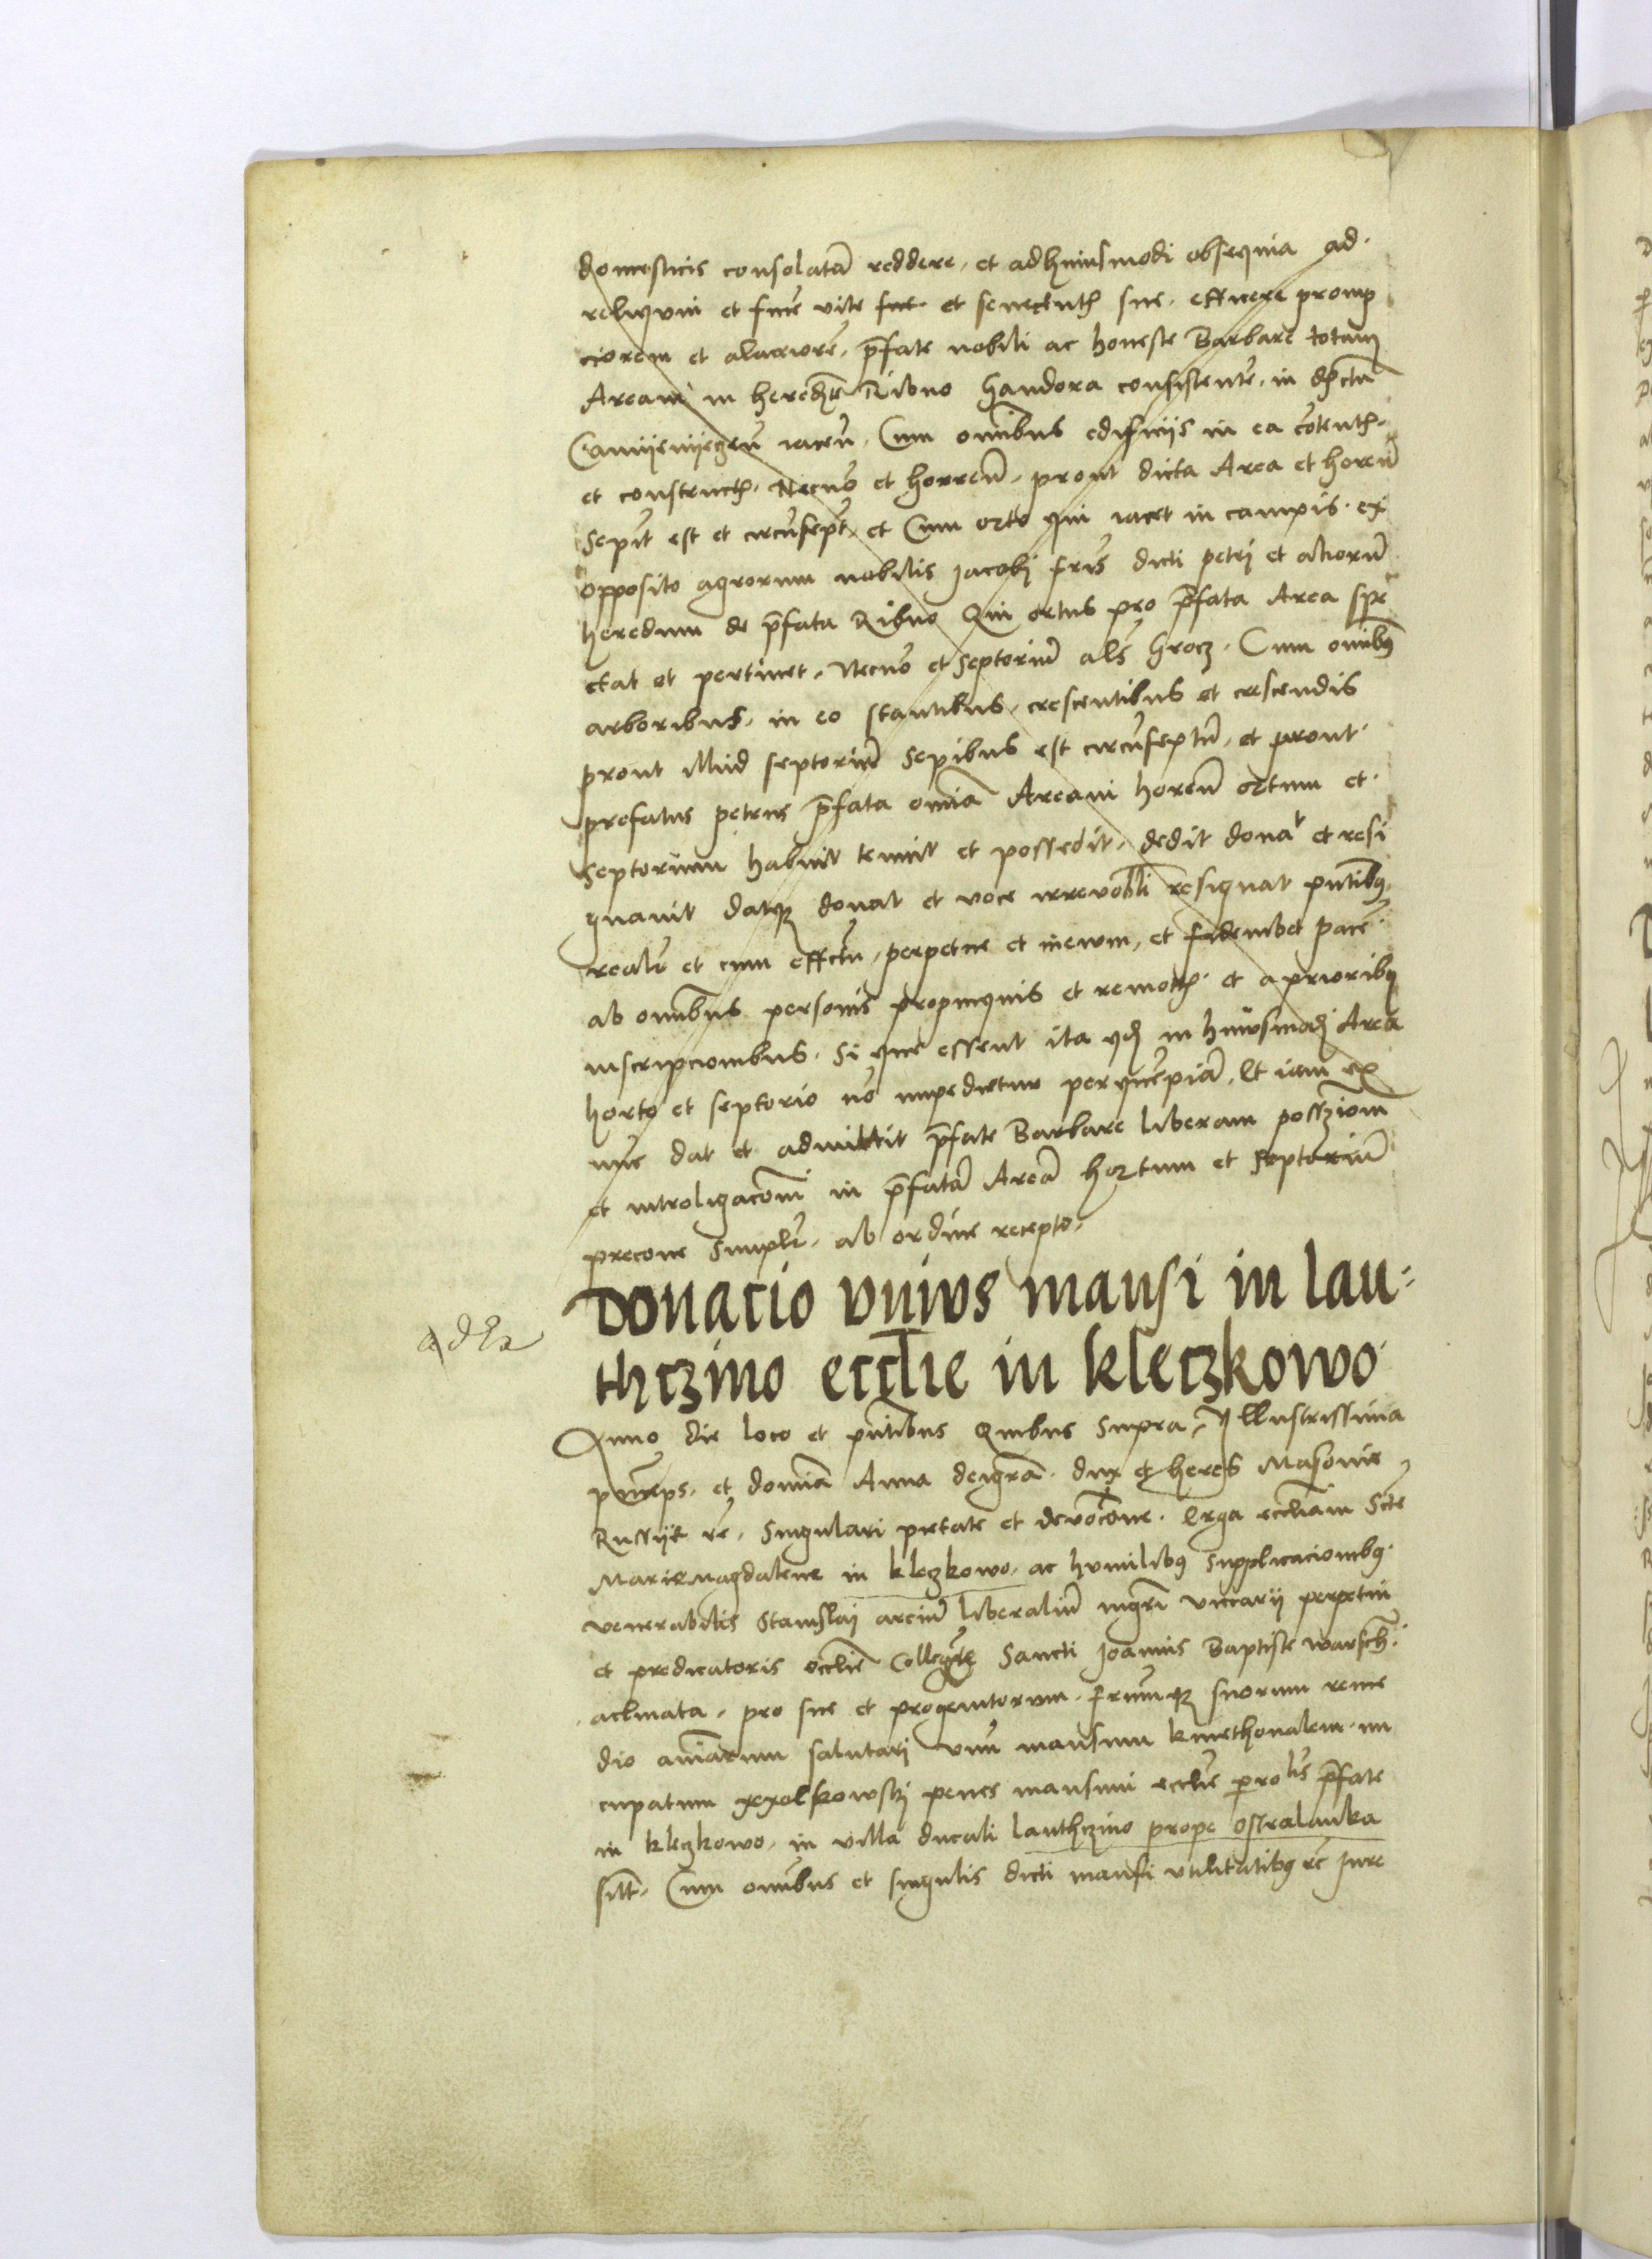 domesticis consolatā reddere, et ad huiusmodi obsequia ad
reliquū et finē vite sue et senectutꝭ sue efficere promp
ciorem et alacriorē, p̄fate nobili ac honeste Barbare totam
Aream in heredit̄ Ribno Gandora consistentē, in dist̄ctu
iaceñ, Cum omībus edificijs in ea cōtentꝭ
et constructꝭ. Necnō et horreū, prout dicta Area et horeū
Sepit̄ est et circūsept̄, et Cum orto qui iacet in campis ex
opposito agrorum nobilis Jacobi fr̄is dicti petri et aliorū
heredum de p̄fata Ribno Qui ortus pro p̄fata Area spe
ctat et pertinet, Necnō et septoriū al̄s Grocz. Cum om̄ibꝰ
arboribus, in eo stantibus, crescentibus et crescendis
prout illud septoriū Sepibus est circūseptū, et prout
prefatus petrus p̄fata omīa Aream horeū ortum et
Septorium habuit tenuit et possedit, dedit donaᵗ et resi
gnavit datqꝫ donat et voce irrevobl̄i resignat pn̄tibꝰ
realit̄ et cum effectu, perpetue et inewm, et pacē
ab omībus personis propinquis et remotꝭ et a prioribꝰ
inscripcionibus. Si que essent ita qd in huiusmodi Area
horto et septorio nō impedietur per quēpiā. Et iam ex
nūc dat et admittit p̄fate Barbare liberam possȝionē
et introligacōnē in p̄fatā Areā hortum et Septoriū
precone Simplī, ab ordine recepto,
Donacio vnius mansi in lau-
thczino eccl̄ie in kleczkowo
Anno die loco et pn̄tibus Quibus Supra, Illustrissima
princeps, et domīa Anna dei grā dux et heres Masovie
Russijē rē, Singulari pietate et devocōne Erga eccl̄iam Scte
Marie Magdalene in kleczkowo, ac humilibꝰ Supplicacionibꝰ
venerabilis Stanislai arciū liberaliū mgr̄i viccarij perpetui
et predicatoris eccl̄ie Collegt̄e Sancti Joannis Baptiste warsch̄
aclinata, pro sue et progenitorum frūmqꝫ suorum reme
dio aīarum salutari vnū mansum kmethonalem nū
cupatum penes mansum eccl̄ie p̄fate
in kleczkowo, in villa ducali lauthczino prope ostralanka
sitt̄, Cum omībus et singulis dicti mansi vtilitatibꝰ rē Jure